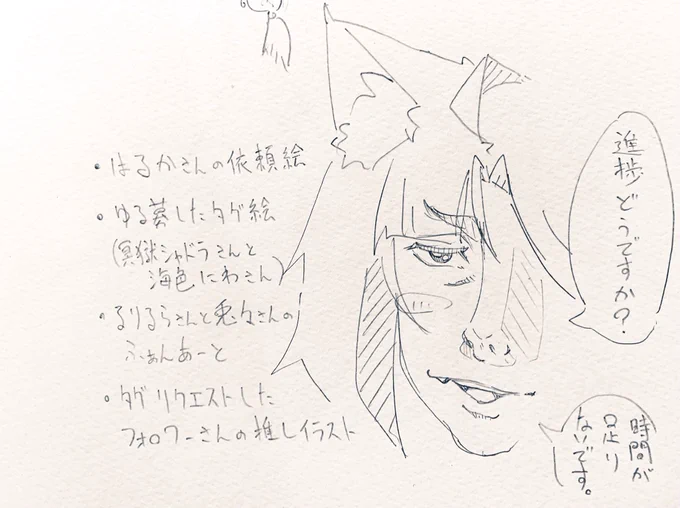 ・はるかさんの依頼絵
・ゆる募したタグ絵
(冥獄シャドラさんと
海色にわさん)
・るりるらさんと兎々さんの
ふぁんあーと
・タグリクエストした
フォロワーさんの推しイラスト
進捗どうですか?
時間が
足り
ないです。